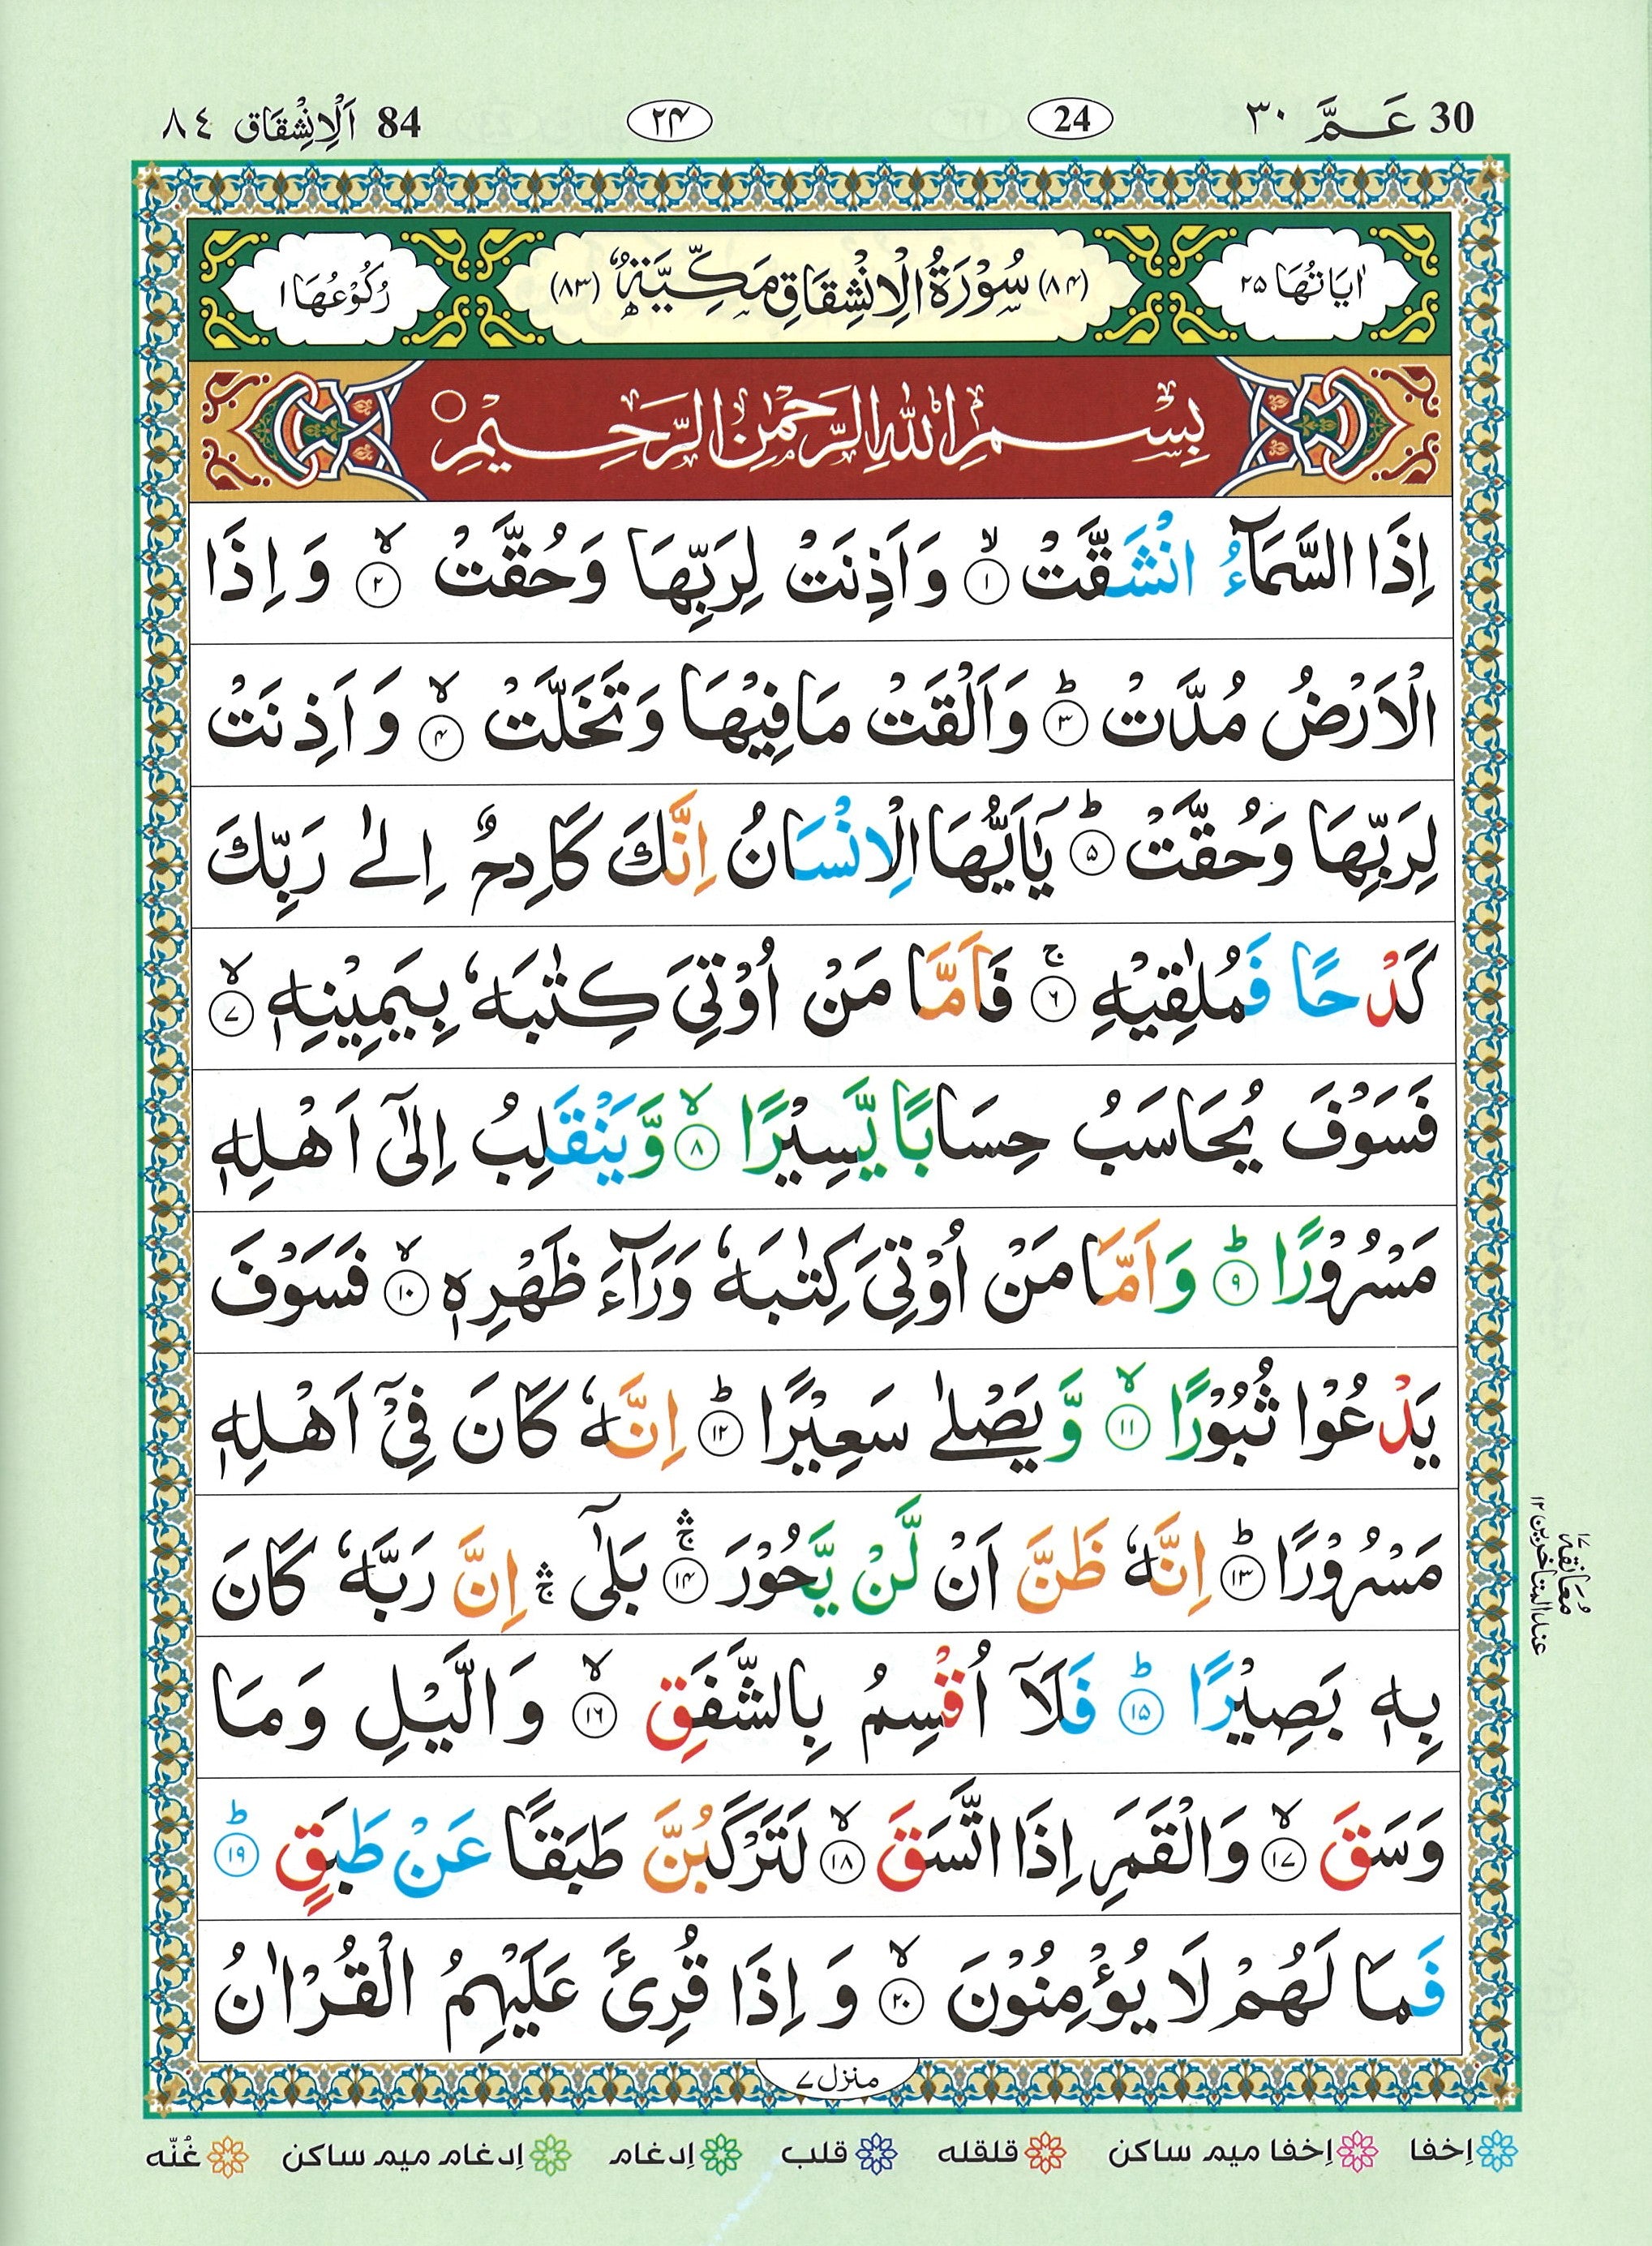 30 عَـمَّ ٣٠
24
۲۴
84 اَلْاِنْشِقَاق ٨٤
اٰيَاتُهَا ٢٥
(٨٤) سُوْرَةُ الْاِنْشِقَاقِ مَكِّيَّةٌ (٨٣)
رُكُوْعُهَا ١
بِسْمِ اللّٰهِ الرَّحْمٰنِ الرَّحِيْمِ ○
اِذَا السَّمَآءُ انْشَقَّتْ ۙ﴿۱﴾ وَ اَذِنَتْ لِرَبِّهَا وَحُقَّتْ ۙ﴿۲﴾ وَ اِذَا
الْاَرْضُ مُدَّتْ ؕ﴿۳﴾ وَ اَلْقَتْ مَا فِيْهَا وَتَخَلَّتْ ۙ﴿۴﴾ وَ اَذِنَتْ
لِرَبِّهَا وَحُقَّتْ ؕ﴿۵﴾ يٰۤاَيُّهَا الْاِنْسَانُ اِنَّكَ كَادِحٌ اِلٰى رَبِّكَ
كَدْحًا فَمُلٰقِيْهِ ۚ﴿۶﴾ فَاَمَّا مَنْ اُوْتِىَ كِتٰبَهٗ بِيَمِيْنِهٖ ۙ﴿۷﴾
فَسَوْفَ يُحَاسَبُ حِسَابًا يَّسِيْرًا ۙ﴿۸﴾ وَّيَنْقَلِبُ اِلٰٓى اَهْلِهٖ
مَسْرُوْرًا ؕ﴿۹﴾ وَاَمَّا مَنْ اُوْتِىَ كِتٰبَهٗ وَرَآءَ ظَهْرِهٖ ۙ﴿۱۰﴾ فَسَوْفَ
يَدْعُوْا ثُبُوْرًا ۙ﴿۱۱﴾ وَّ يَصْلٰى سَعِيْرًا ؕ﴿۱۲﴾ اِنَّهٗ كَانَ فِىْۤ اَهْلِهٖ
مَسْرُوْرًا ؕ﴿۱۳﴾ اِنَّهٗ ظَنَّ اَنْ لَّنْ يَّحُوْرَ ۛۚ﴿۱۴﴾ بَلٰٓى ۛۚ اِنَّ رَبَّهٗ كَانَ
بِهٖ بَصِيْرًا ؕ﴿۱۵﴾ فَلَاۤ اُقْسِمُ بِالشَّفَقِ ۙ﴿۱۶﴾ وَالَّيْلِ وَمَا
وَسَقَ ۙ﴿۱۷﴾ وَالْقَمَرِ اِذَا اتَّسَقَ ۙ﴿۱۸﴾ لَتَرْكَبُنَّ طَبَقًا عَنْ طَبَقٍ ؕ﴿۱۹﴾
فَمَا لَهُمْ لَا يُؤْمِنُوْنَ ۙ﴿۲۰﴾ وَ اِذَا قُرِئَ عَلَيْهِمُ الْقُرْاٰنُ
مُعَانقة ١٧
عند المتاخرين ١٢
منزل ۷
اِخفا اِخفا ميم ساكن قلقله قلب اِدغام اِدغام ميم ساكن غُنّه